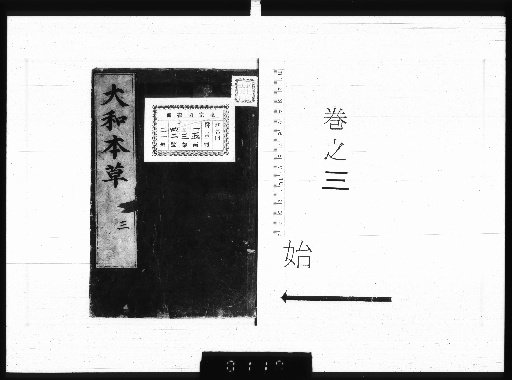 巻之三
始
大和本草
三
0117